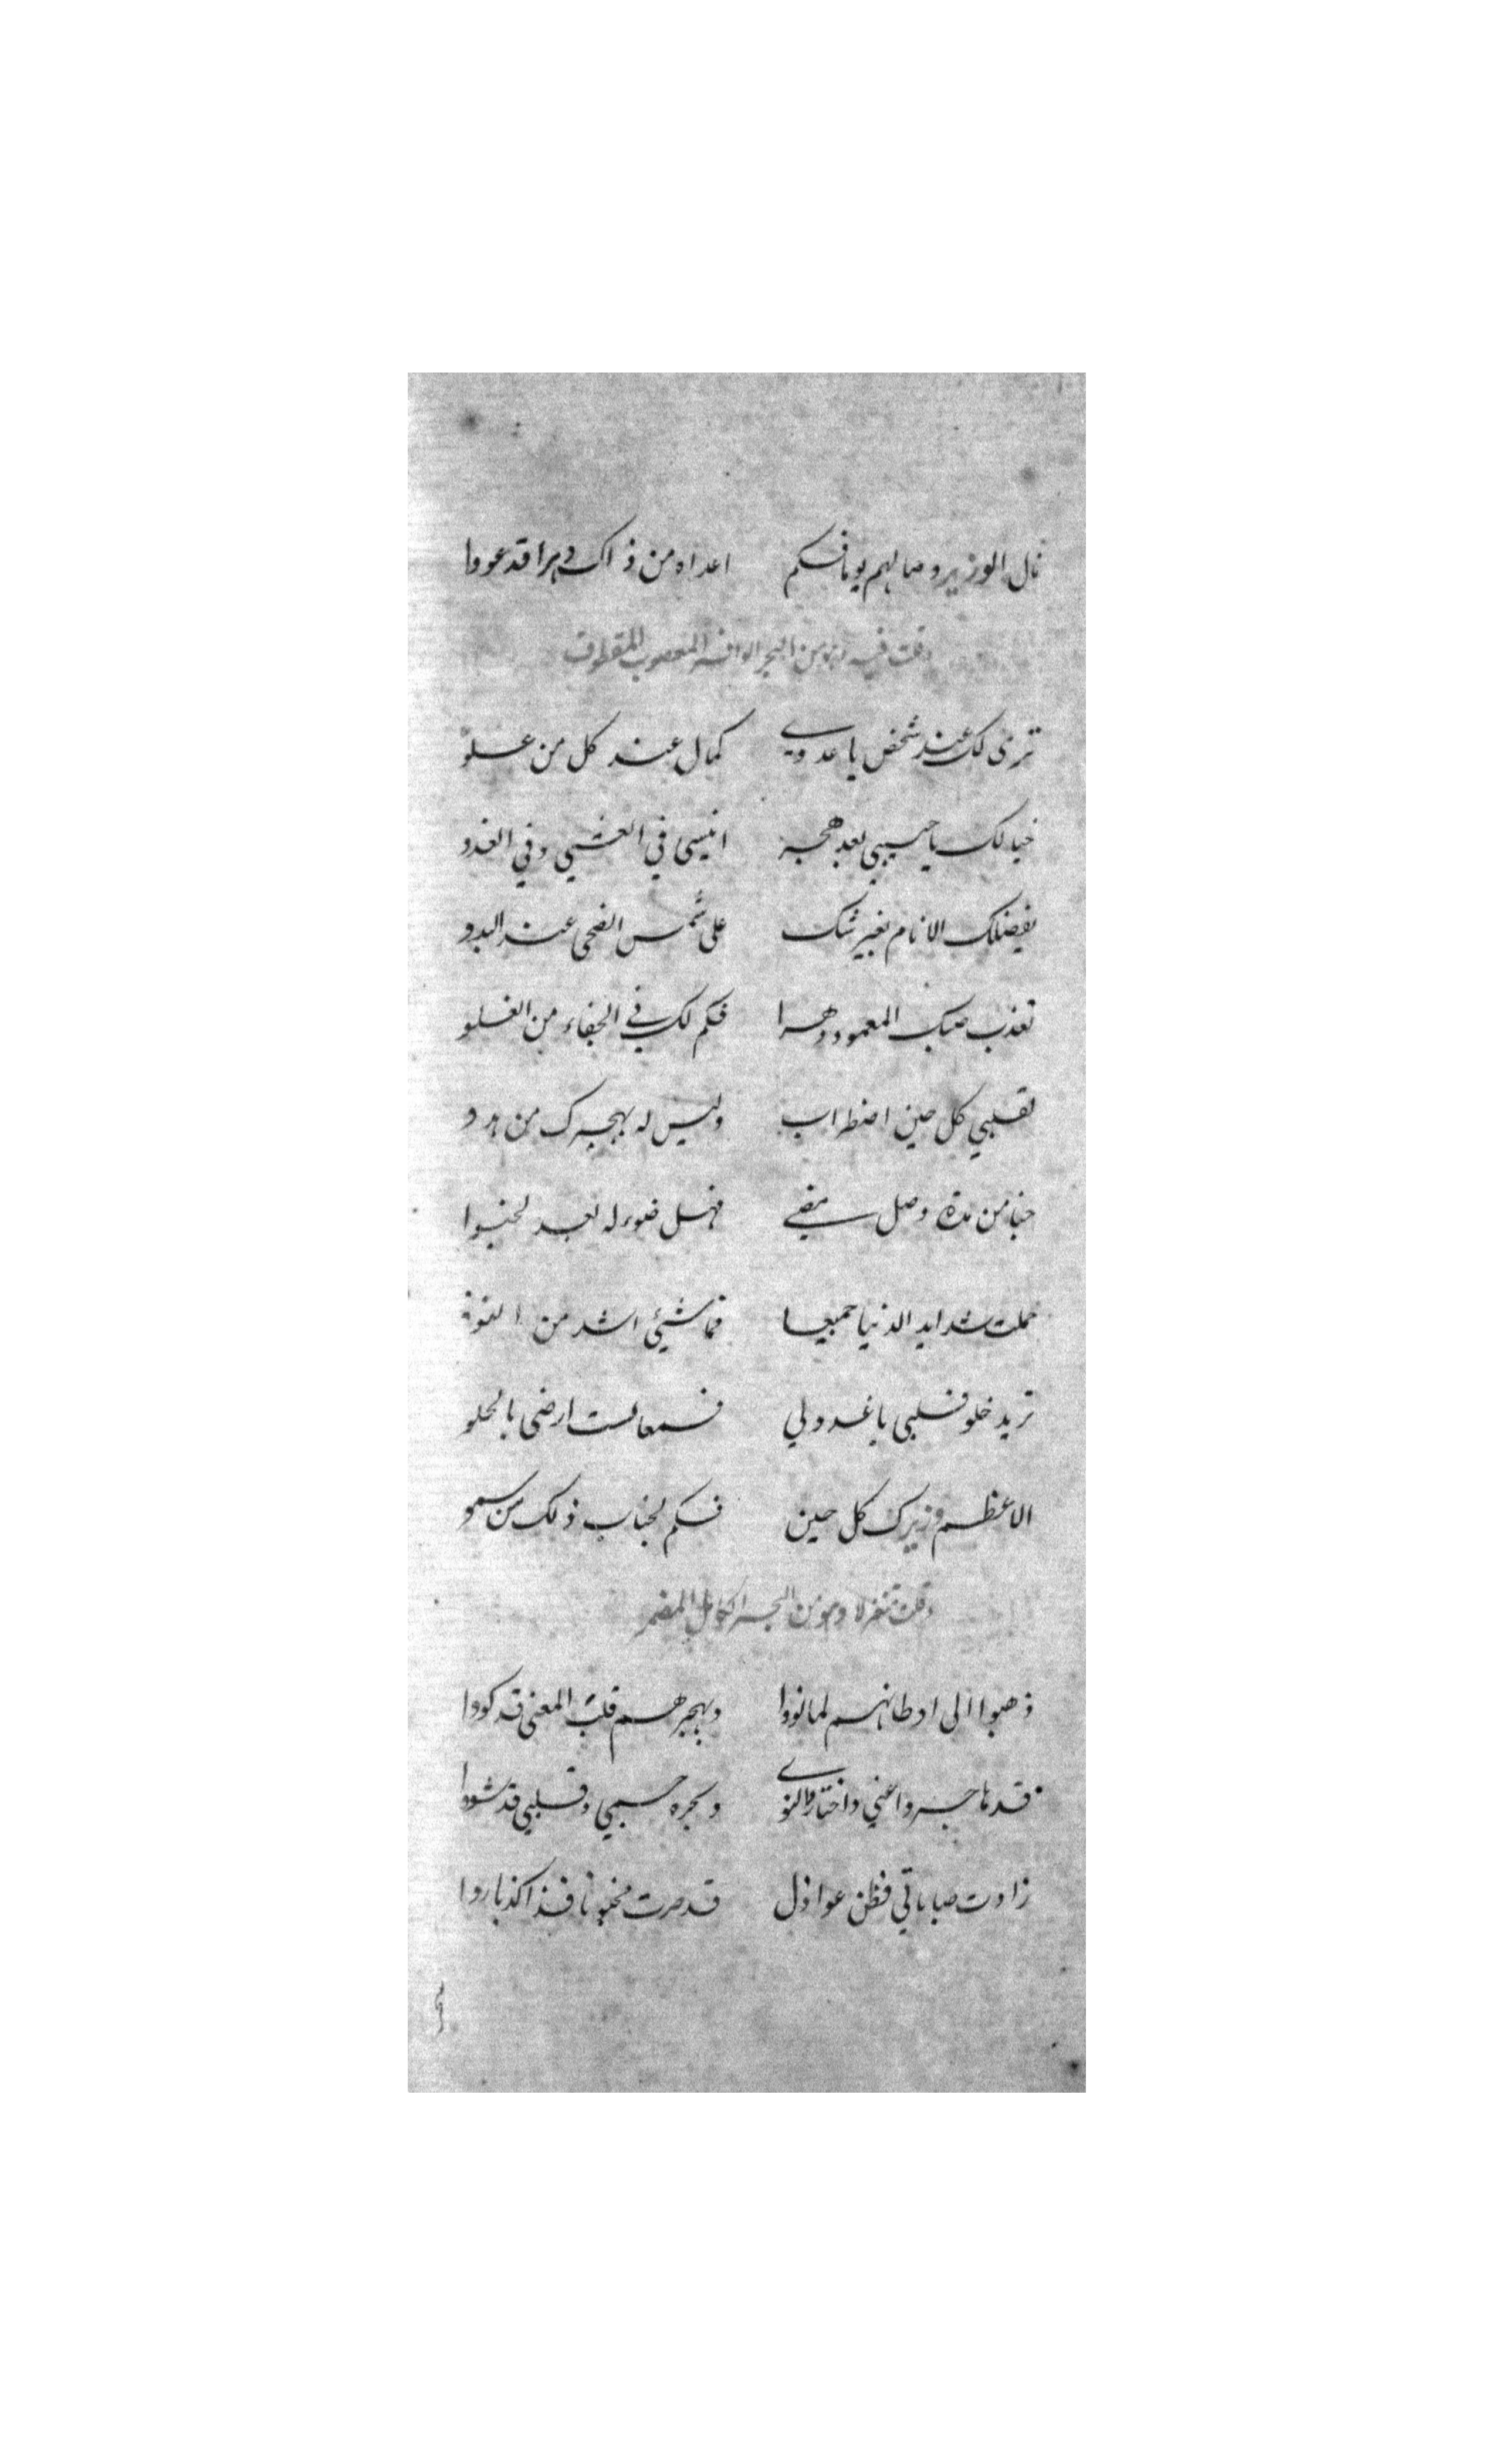 نال الوزير وصالهم يوما فكم اعداه من ذاك دهرا قد عووا
وقلت فيه ايضا من البحر الوافر المعصوب المقطوف
ترى لك عند شخص يا عدوي كمال عند كل من علو
خيالك يا حبيبي بعد هجر انيسى في العشي وفي الغدو
يفضلك الانام بغير شك على شمس الضحى عند البدو
تعذب صبك المعمود دهرا فكم لك في الجفاء من الغلو
لقلبي كل حين اضطراب وليس له بهجرك من هدو
من مدة وصل مضى فهل ضوء له بعد
حملت شدايد الدنيا جميعا فما شيئ اشد من
تريد خلو قلبي يا عدولي فسمعا لست ارضى بالخلو
الا عظم وزيرك كل حين فكم لجناب ذلك من سمو
وقلت متغزلا وهو من البحر الكامل المضمر
ذهبوا الى اوطانهم لما نووا وبهجرهم قلب المعنى قد كووا
قد هاجروا عني واختاروا النوى جسمي وقلبي قد شووا
زادت صباباتي فظن عواذل قد صرت مجنونا فذا كذبا رووا